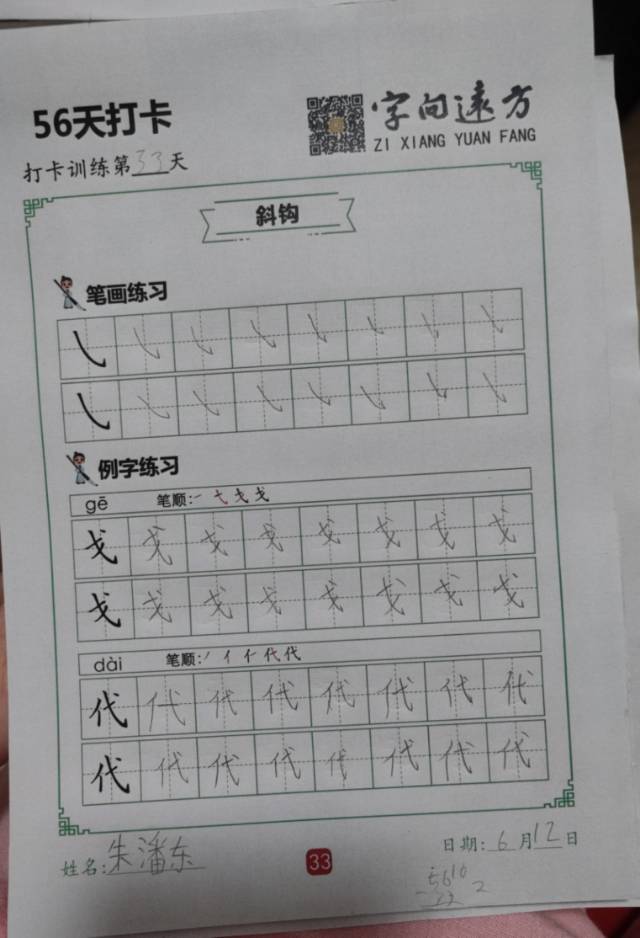 56天打卡
字向远方
ZI XIANG YUAN FANG
打卡训练第33天
斜钩
笔画练习
例字练习
gē 笔顺:
戈 戈 戈 戈 戈 戈 戈 戈
戈 戈 戈 戈 戈 戈 戈 戈
dài 笔顺:
代 代 代 代 代 代 代 代
代 代 代 代 代 代 代 代
姓名:朱潘东
33
日期:6月12日